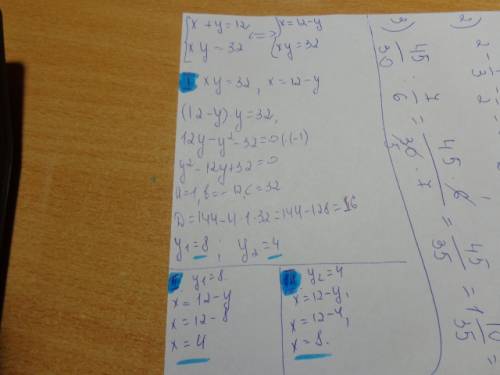 {x+y=12 <=> {x=12-y
{xy=32 {xy=32
I xy=32, x=12-y
(12-y)·y=32,
12y-y²-32=0 |·(-1)
y²-12y+32=0
a=1, b=-12, c=32
D=144-4·1·32=144-128=16
y₁=8; y₂=4
y₁=8
x=12-y
x=12-8
x=4
y₂=4
x=12-y,
x=12-4,
x=8.
2)
3) 45/30 · 6/7 = 45·6/30·7 = 45/35 = 1 10/35 =